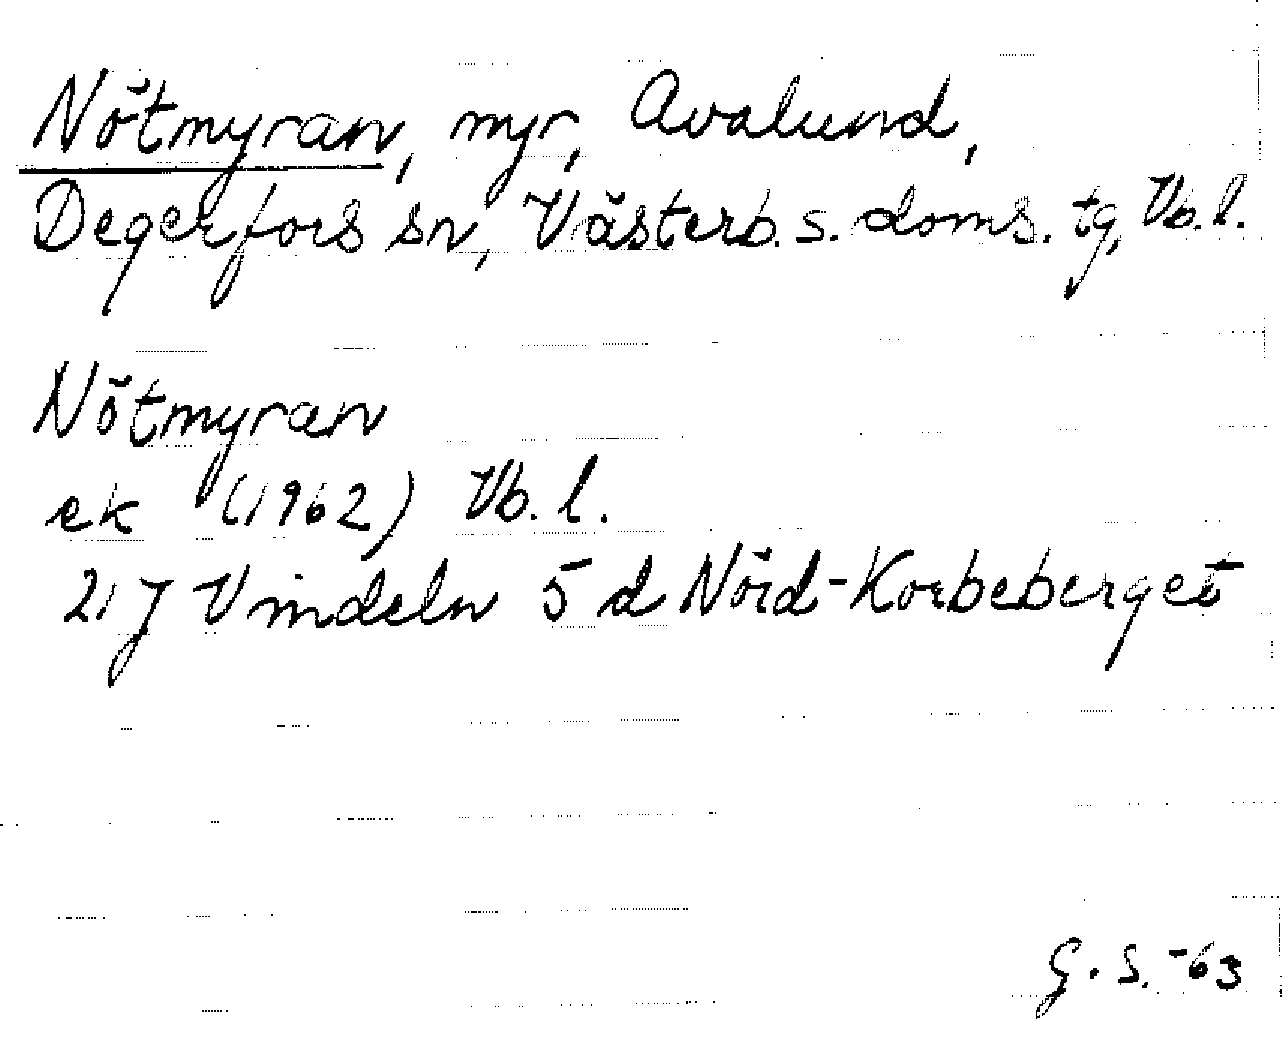 Nötmyran, myr, Avalund,
Degerfors sn, Västerb. s. doms. tg, Vb. l.
Nötmyran
ek (1962) Vb. l.
21 J Vindeln 5 d Nörd-Korbeberget
G. S. -63